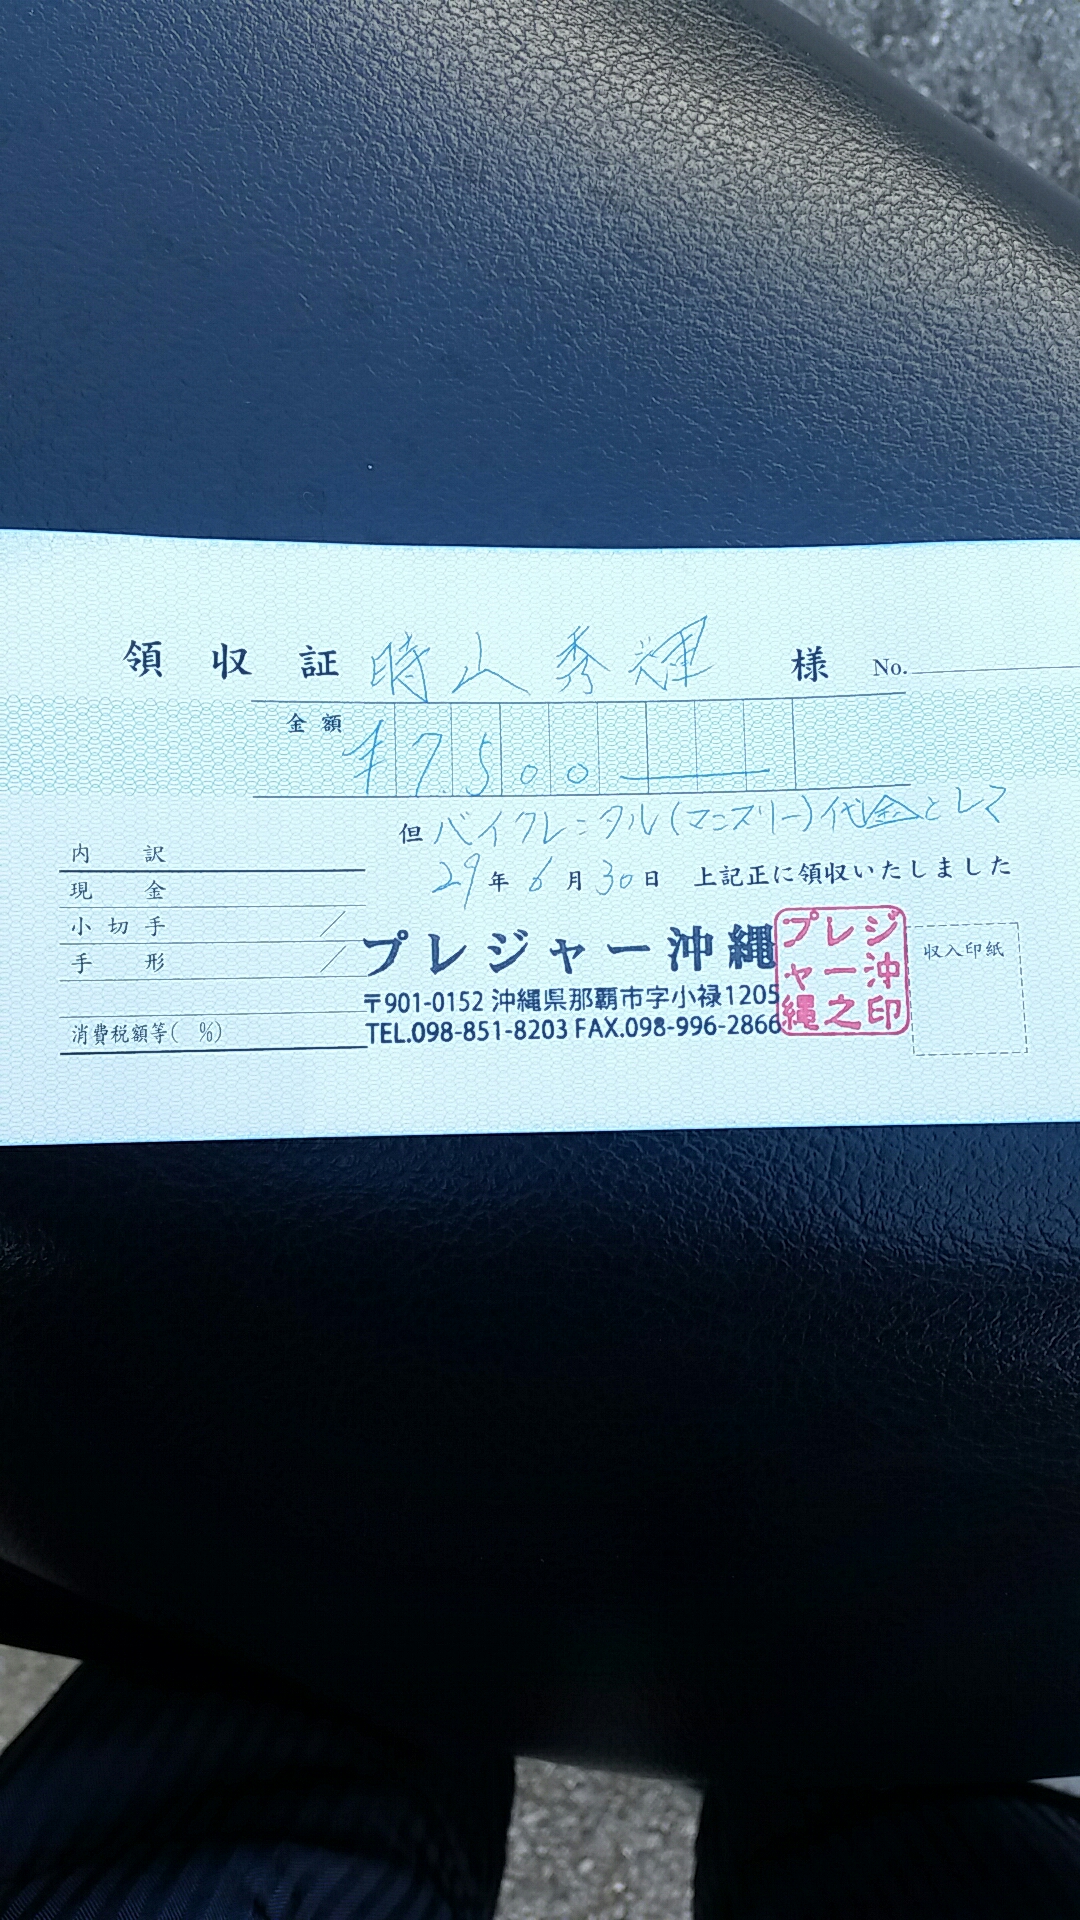 領収証 時山秀輝 様 No.
金額 ¥7,500
但 バイクレンタル(マンスリー)代金として
29年6月30日 上記正に領収いたしました
内訳
現金
小切手
手形
消費税額等( %)
プレジャー沖縄
〒901-0152 沖縄県那覇市字小禄1205
TEL.098-851-8203 FAX.098-996-2866
プレジャー沖縄之印
収入印紙